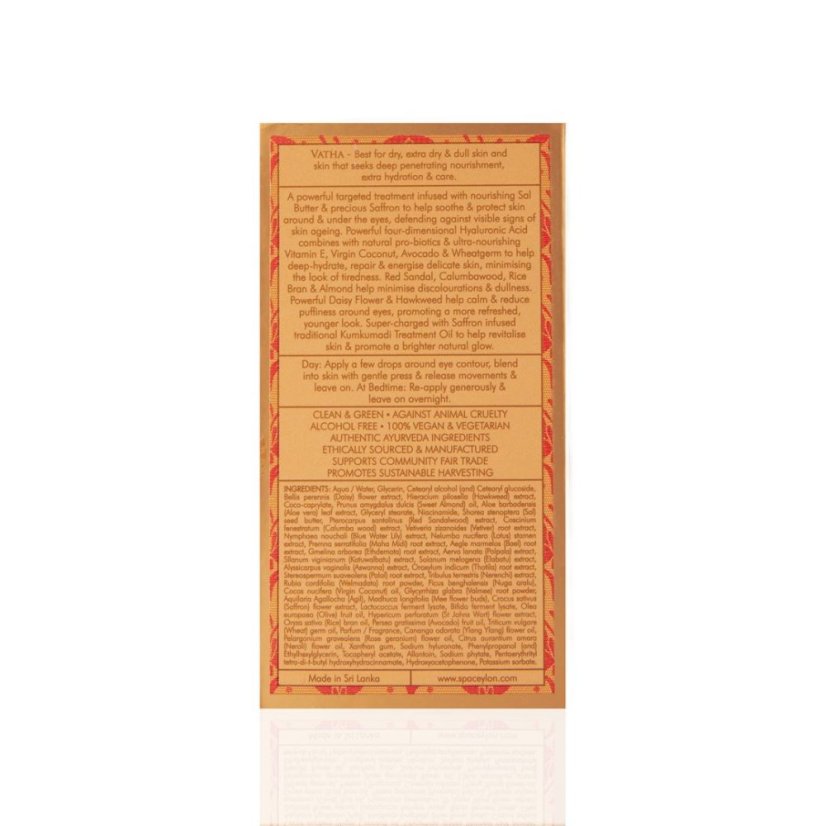 VATHA - Best for dry, extra dry & dull skin and
skin that seeks deep penetrating nourishment,
extra hydration & care.
A powerful targeted treatment infused with nourishing Sal
Butter & precious Saffron to help soothe & protect skin
around & under the eyes, defending against visible signs of
skin ageing. Powerful four-dimensional Hyaluronic Acid
combines with natural pro-biotics & ultra-nourishing
Vitamin E, Virgin Coconut, Avocado & Wheatgerm to help
deep-hydrate, repair & energise delicate skin, minimising
the look of tiredness. Red Sandal, Calumbawood, Rice
Bran & Almond help minimise discolourations & dullness.
Powerful Daisy Flower & Hawkweed help calm & reduce
puffiness around eyes, promoting a more refreshed,
younger look. Super-charged with Saffron infused
traditional Kumkumadi Treatment Oil to help revitalise
skin & promote a brighter natural glow.
Day: Apply a few drops around eye contour, blend
into skin with gentle press & release movements &
leave on. At Bedtime: Re-apply generously &
leave on overnight.
CLEAN & GREEN • AGAINST ANIMAL CRUELTY
ALCOHOL FREE • 100% VEGAN & VEGETARIAN
AUTHENTIC AYURVEDA INGREDIENTS
ETHICALLY SOURCED & MANUFACTURED
SUPPORTS COMMUNITY FAIR TRADE
PROMOTES SUSTAINABLE HARVESTING
INGREDIENTS: Aqua / Water, Glycerin, Cetearyl alcohol (and) Cetearyl glucoside,
Bellis perennis (Daisy) flower extract, Hieracium pilosella (Hawkweed) extract,
Coco-caprylate, Prunus amygdalus dulcis (Sweet Almond) oil, Aloe barbadensis
(Aloe vera) leaf extract, Glyceryl stearate, Niacinamide, Shorea stenoptera (Sal)
seed butter, Pterocarpus santalinus (Red Sandalwood) extract, Coscinium
fenestratum (Calumba wood) extract, Vetiveria zizanoides (Vetiver) root extract,
Nymphaea nouchali (Blue Water Lily) extract, Nelumbo nucifera (Lotus) stamen
extract, Premna serratifolia (Maha Midi) root extract, Aegle marmelos (Bael) root
extract, Gmelina arborea (Ethdemata) root extract, Aerva lanata (Polpala) extract,
extract, Solanum melogena (Elabatu) extract,
Alyssicarpus vaginalis (Aswanna) extract, Oroxylum indicum (Thotila) root extract,
Stereospermum suaveolens (Palol) root extract, Tribulus terrestris (Nerenchi) extract,
Rubia cordifolia (Welmadata) root powder, Ficus benghalensis (Nuga aralu),
Cocos nucifera (Virgin Coconut) oil, Glycyrrhiza glabra (Valmee) root powder,
Aquilaria Agallocha (Agil), Madhuca longifolia (Mee flower buds), Crocus sativus
(Saffron) flower extract, Lactococcus ferment lysate, Bifida ferment lysate, Olea
europaea (Olive) fruit oil, Hypericum perforatum (St Johns Wort) flower extract,
Oryza sativa (Rice) bran oil, Persea gratissima (Avocado) fruit oil, Triticum vulgare
(Wheat) germ oil, Parfum / Fragrance, Cananga odorata (Ylang Ylang) flower oil,
Pelargonium graveolens (Rose geranium) flower oil, Citrus aurantium amara
(Neroli) flower oil, Xanthan gum, Sodium hyluronate, Phenylpropanol (and)
Ethylhexylglycerin, Tocopheryl acetate, Allantoin, Sodium phytate, Pentaerythrityl
tetra-di-t-butyl hydroxyhydrocinnamate, Hydroxyacetophenone, Potassium sorbate.
Made in Sri Lanka
www.spaceylon.com